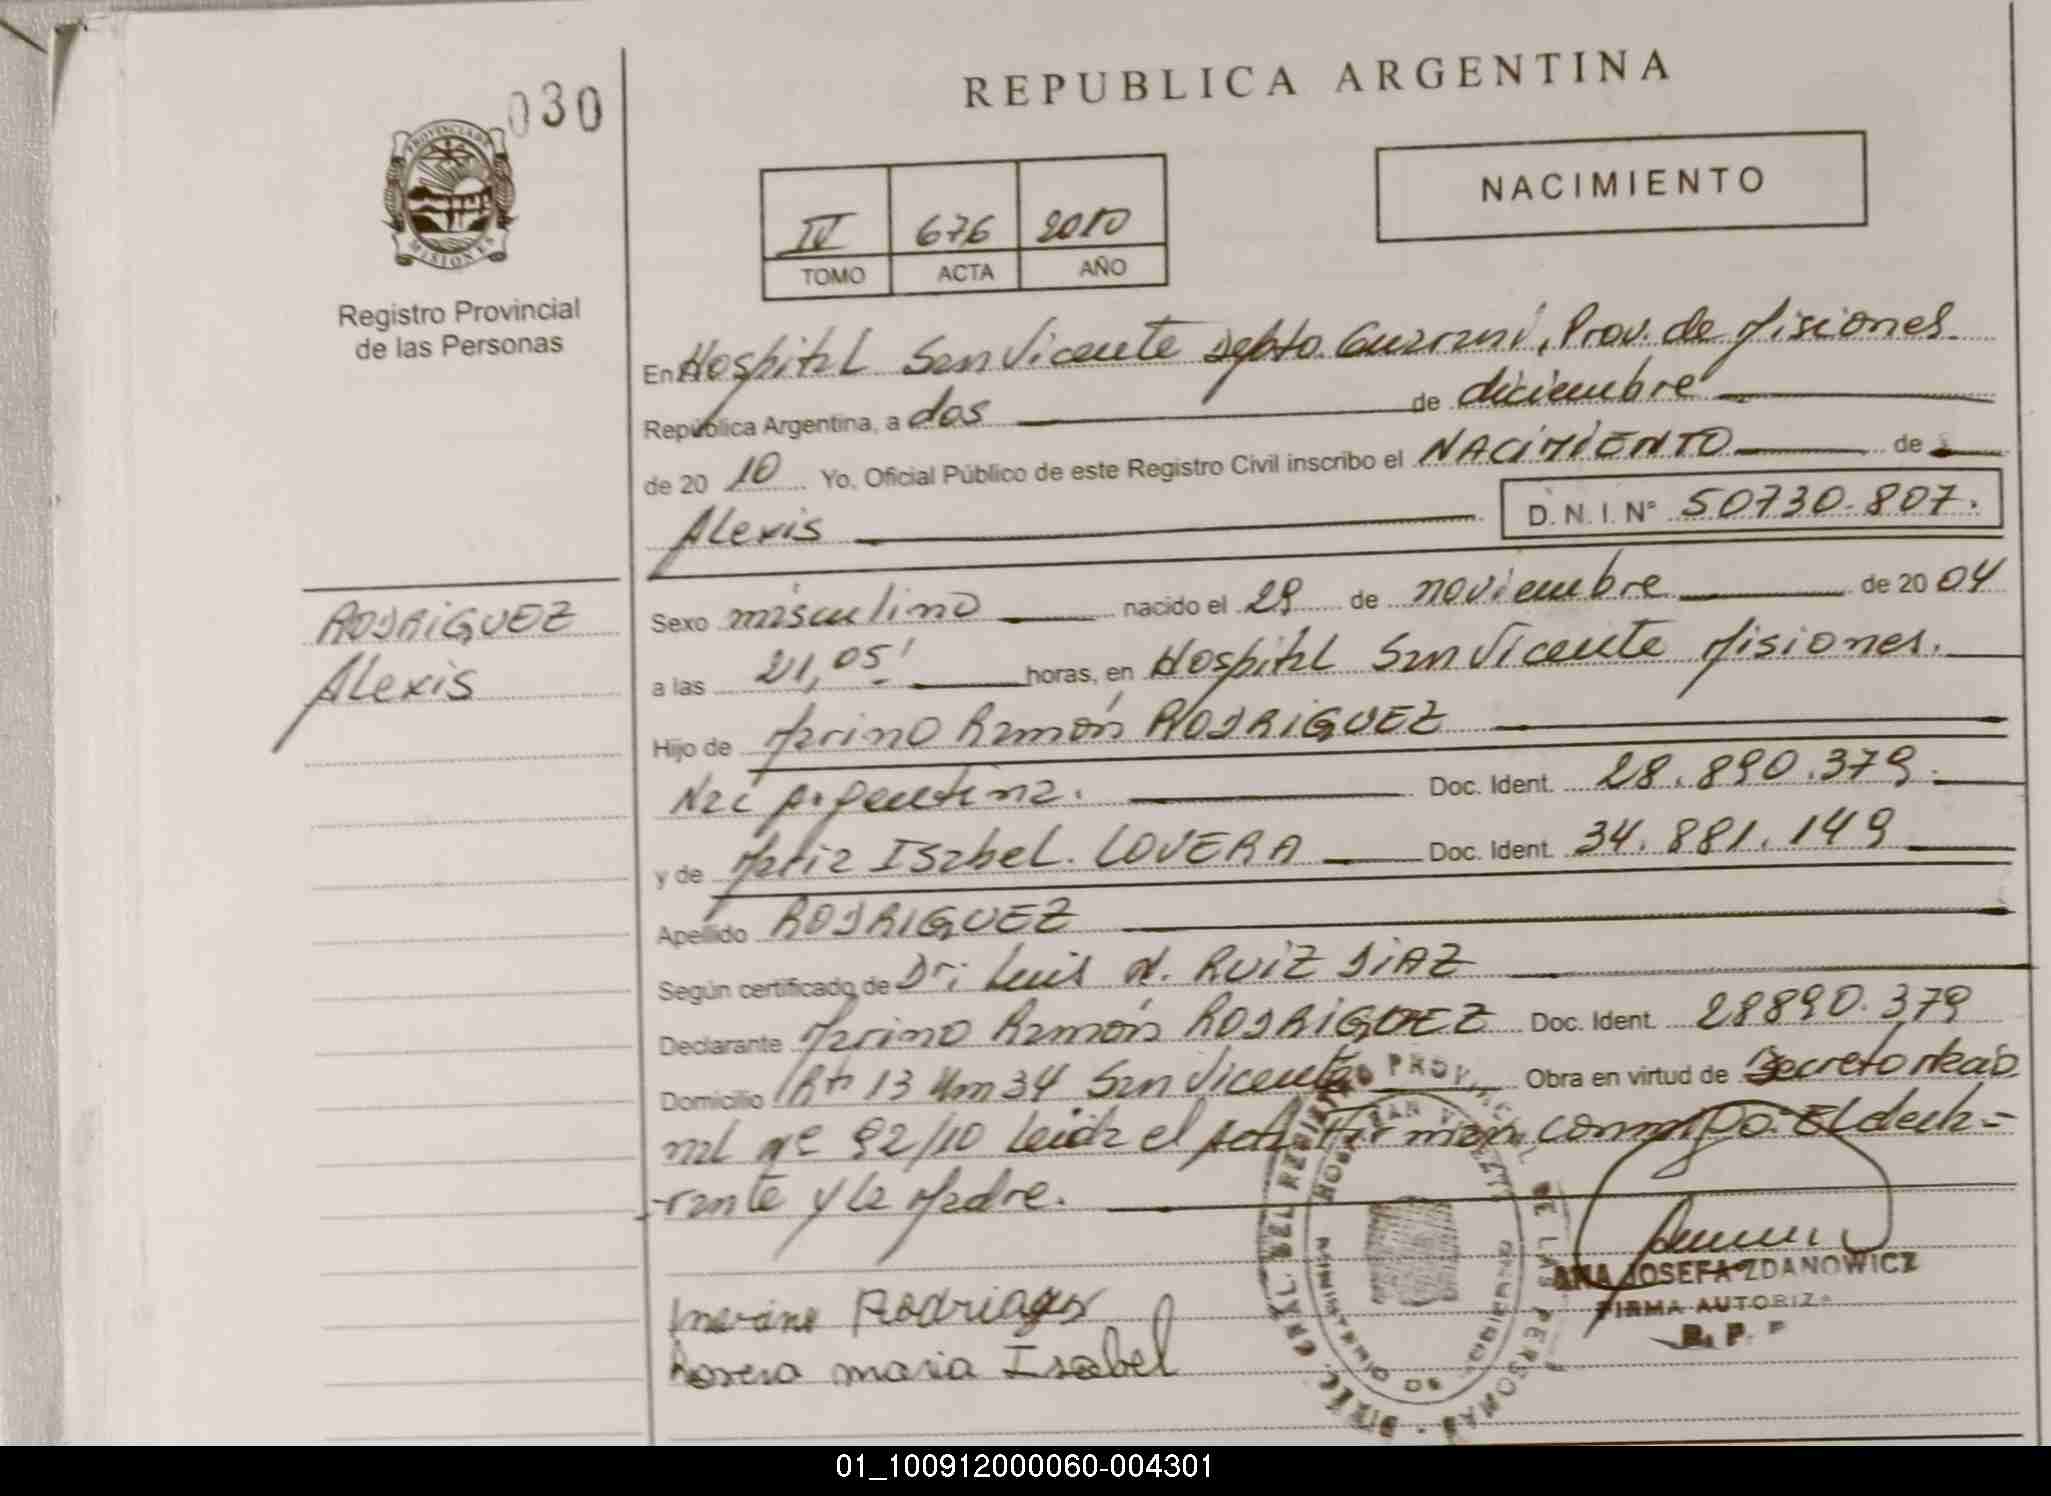 030
REPUBLICA ARGENTINA
PROVINCIA DE
MISIONES
Registro Provincial
de las Personas
IV 676 2010
TOMO ACTA AÑO
NACIMIENTO
En Hospital San Vicente Depto. Guarani, Prov. de Misiones
República Argentina, a dos de diciembre
de 20 10 Yo, Oficial Público de este Registro Civil inscribo el NACIMIENTO de
Alexis D.N.I. Nº 50730.807.
RODRIGUEZ
Alexis
Sexo masculino nacido el 29 de noviembre de 20 04
a las 21,05' horas, en Hospital San Vicente Misiones.
Hijo de Marino Ramón RODRIGUEZ
Nac Argentina. Doc. Ident. 28.890.379.
y de Maria Isabel. LOVERA Doc. Ident. 34.881.149
Apellido RODRIGUEZ
Según certificado de Dr: Luis A. RUIZ DIAZ
Declarante Marino Ramón RODRIGUEZ Doc. Ident. 28890.379
Domicilio Rta 13 Km 34 San Vicente Obra en virtud de Decreto Nacio
nal Nº 92/10 Leida el Acta Firman conmigo El decla=
-rante y la Madre.
marino Rodrigues
Lovera maria Isabel
ANA JOSEFA ZDANOWICZ
FIRMA AUTORIZA
R. P. P
01_100912000060-004301